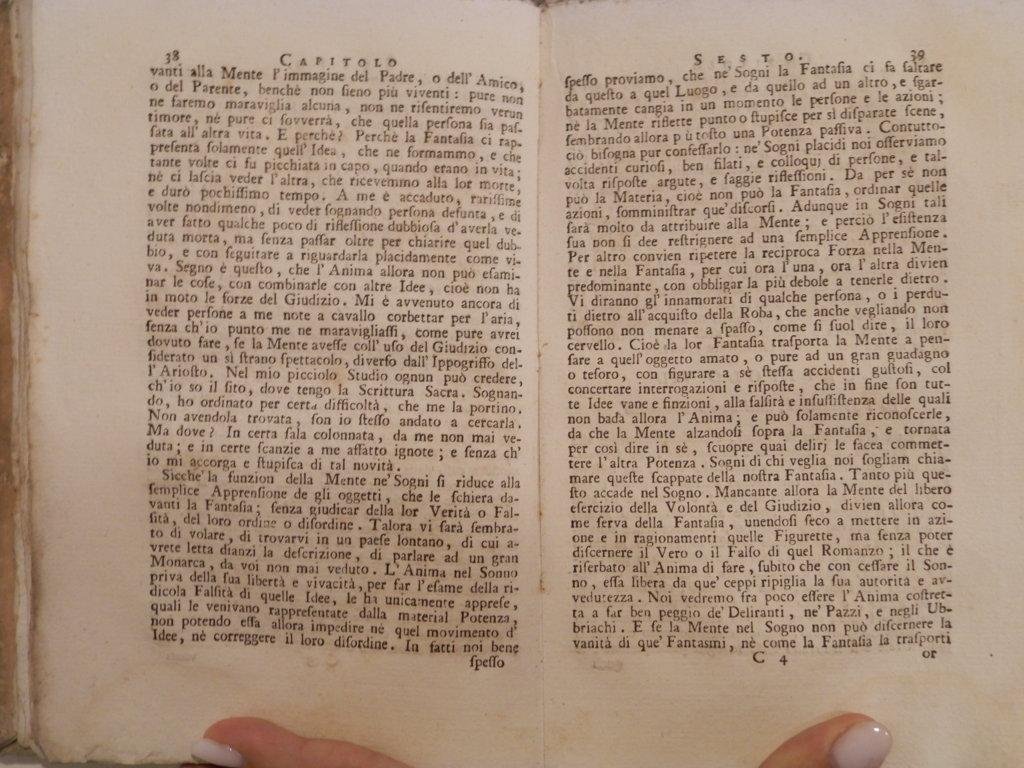 38
CAPITOLO
vanti alla Mente l'immagine del Padre, o dell'Amico,
o del Parente, benchè non ſieno più viventi: pure non
ne faremo maraviglia alcuna, non ne riſentiremo verun
timore, nè pure ci ſovverrà, che quella perſona ſia paſ-
ſata all'altra vita. E perchè? Perchè la Fantaſia ci rap-
preſenta ſolamente quell'Idea, che ne formammo, e che
tante volte ci fu picchiata in capo, quando erano in vita;
nè ci laſcia veder l'altra, che ricevemmo alla lor morte,
e durò pochiſſimo tempo. A me è accaduto, rariſſime
volte nondimeno, di veder ſognando perſona defunta, e di
aver fatto qualche poco di rifleſſione dubbioſa d'averla ve-
duta morta, ma ſenza paſſar oltre per chiarire quel dub-
bio, e con ſeguitare a riguardarla placidamente come vi-
va. Segno è queſto, che l'Anima allora non può eſami-
nar le coſe, con combinarle con altre Idee, cioè non ha
in moto le forze del Giudizio. Mi è avvenuto ancora di
veder perſone a me note a cavallo corbettar per l'aria,
ſenza ch'io punto me ne maravigliaſſi, come pure avrei
dovuto fare, ſe la Mente aveſſe coll'uſo del Giudizio con-
ſiderato un sì ſtrano ſpettacolo, diverſo dall'Ippogriffo del-
l'Arioſto. Nel mio picciolo Studio ognun può credere,
ch'io so il ſito, dove tengo la Scrittura Sacra. Sognan-
do, ho ordinato per certa difficoltà, che me la portino.
Non avendola trovata, ſon io ſteſſo andato a cercarla.
Ma dove? In certa ſala colonnata, da me non mai ve-
duta; e in certe ſcanzie a me affatto ignote; e ſenza ch'
io mi accorga e ſtupiſca di tal novità.
Sicchè la funzion della Mente ne'Sogni ſi riduce alla
ſemplice Apprenſione de gli oggetti, che le ſchiera da-
vanti la Fantaſia; ſenza giudicar della lor Verità o Fal-
ſità, del loro ordine o diſordine. Talora vi ſarà ſembra-
to di volare, di trovarvi in un paeſe lontano, di cui a-
vrete letta dianzi la deſcrizione, di parlare ad un gran
Monarca, da voi non mai veduto. L'Anima nel Sonno
priva della ſua libertà e vivacità, per far l'eſame della ri-
dicola Falſità di quelle Idee, le ha unicamente appreſe,
quali le venivano rappreſentate dalla material Potenza,
non potendo eſſa allora impedire nè quel movimento d'
Idee, nè correggere il loro diſordine. In fatti noi bene
ſpeſſo
SESTO.
39
ſpeſſo proviamo, che ne'Sogni la Fantaſia ci fa ſaltare
da queſto a quel Luogo, e da quello ad un altro, e sgar-
batamente cangia in un momento le perſone e le azioni;
nè la Mente riflette punto o ſtupiſce per sì diſparate ſcene,
ſembrando allora più toſto una Potenza paſſiva. Contutto-
ciò biſogna pur confeſſarlo: ne'Sogni placidi noi oſſerviamo
accidenti curioſi, ben filati, e colloquj di perſone, e tal-
volta riſpoſte argute, e ſaggie rifleſſioni. Da per sè non
può la Materia, cioè non può la Fantaſia, ordinar quelle
azioni, ſomminiſtrar que'diſcorſi. Adunque in Sogni tali
ſarà molto da attribuire alla Mente; e perciò l'eſiſtenza
ſua non ſi dee reſtrignere ad una ſemplice Apprenſione.
Per altro convien ripetere la reciproca Forza nella Men-
te e nella Fantaſia, per cui ora l'una, ora l'altra divien
predominante, con obbligar la più debole a tenerle dietro.
Vi diranno gl'innamorati di qualche perſona, o i perdu-
ti dietro all'acquiſto della Roba, che anche vegliando non
poſſono non menare a ſpaſſo, come ſi ſuol dire, il loro
cervello. Cioè la lor Fantaſia traſporta la Mente a pen-
ſare a quell'oggetto amato, o pure ad un gran guadagno
o teſoro, con figurare a sè ſteſſa accidenti guſtoſi, col
concertare interrogazioni e riſpoſte, che in fine ſon tut-
te Idee vane e finzioni, alla falſità e inſuſſiſtenza delle quali
non bada allora l'Anima; e può ſolamente riconoſcerle,
da che la Mente alzandoſi ſopra la Fantaſia, e tornata
per così dire in sè, ſcuopre quai delirj le facea commet-
tere l'altra Potenza. Sogni di chi veglia noi ſogliam chia-
mare queſte ſcappate della noſtra Fantaſia. Tanto più que-
ſto accade nel Sogno. Mancante allora la Mente del libero
eſercizio della Volontà e del Giudizio, divien allora co-
me ſerva della Fantaſia, unendoſi ſeco a mettere in azi-
one e in ragionamenti quelle Figurette, ma ſenza poter
diſcernere il Vero o il Falſo di quel Romanzo; il che è
riſerbato all'Anima di fare, ſubito che con ceſſare il Son-
no, eſſa libera da que'ceppi ripiglia la ſua autorità e av-
vedutezza. Noi vedremo fra poco eſſere l'Anima coſtret-
ta a far ben peggio de'Deliranti, ne'Pazzi, e negli Ub-
briachi. E ſe la Mente nel Sogno non può diſcernere la
vanità di que'Fantasmi, nè come la Fantaſia la traſporti
C 4
or